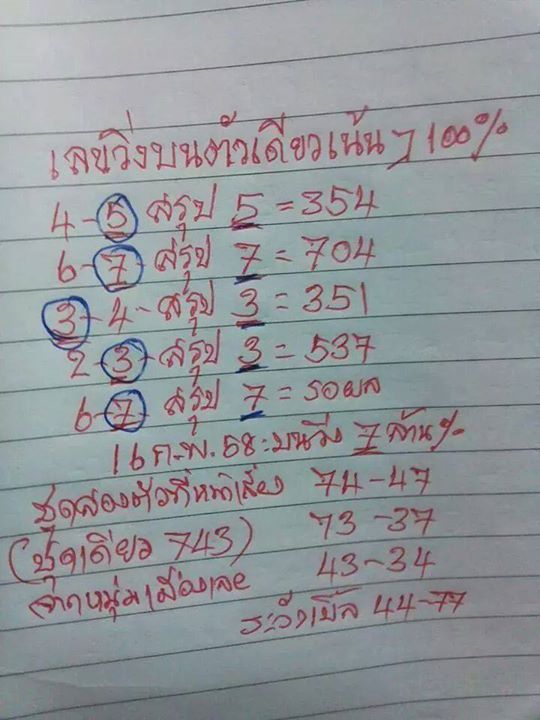 เลขวิ่งบนตัวเดียวเน้นๆ 100%
4-5 สรุป 5 = 354
6-7 สรุป 7 = 704
3-4- สรุป 3 = 351
2-3-สรุป 3 = 537
6-7 สรุป 7 = รอผล
16 ก.พ. 58 = บนวิ่ง 7 ล้าน%
ชุดสองตัวที่ 74-47
(ชุดเดียว 743) 73-37
จากหนุ่มเมืองเลย 43-34
ระวังเบิ้ล 44-77